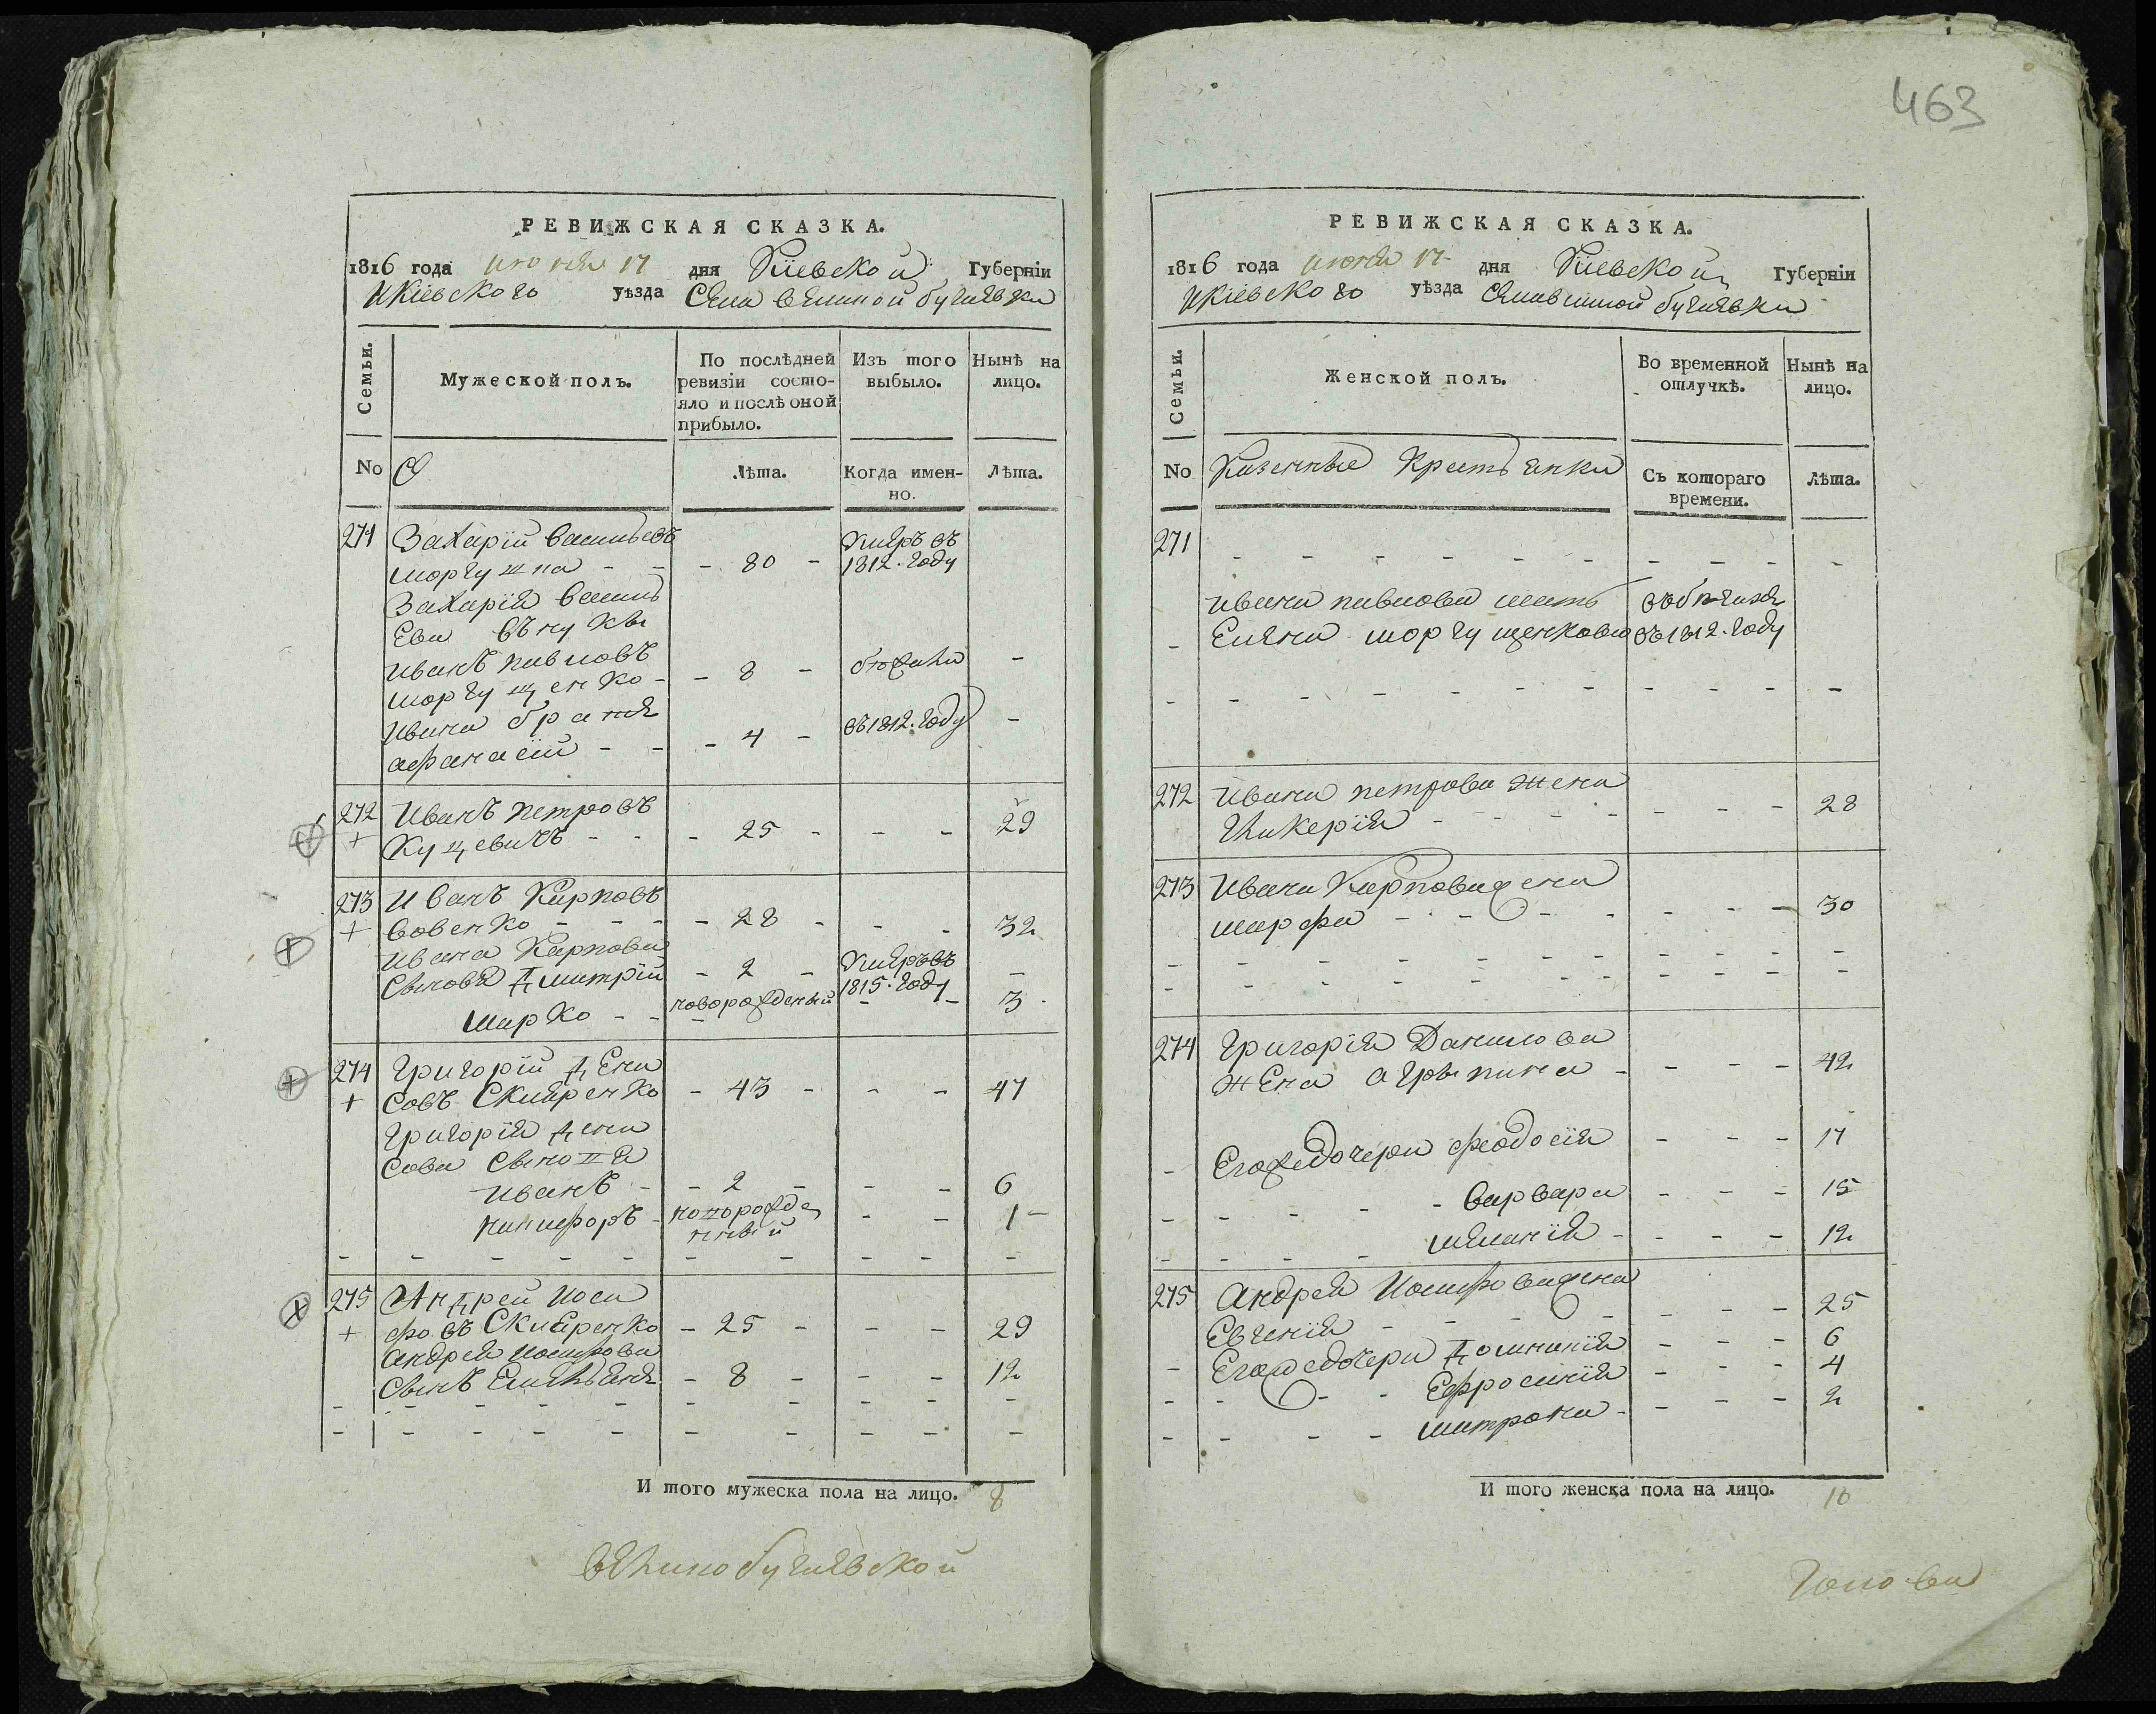 463
РЕВИЖСКАЯ СКАЗКА.
1816 года июня 17 дня Кіевской Губерніи
Икіевского уѣзда Села великой бугаевки
Семьи.
Мужеской полъ.
По послѣдней ревизіи состо-
яло и послѣ оной
прибыло.
Изъ того
выбыло.
Нынѣ на
лицо.
No
Лѣта.
Когда имен-
но.
Лѣта.
271 Захарій васильевъ
80 умеръ въ
1812. году
Захарія василь
Ева внуки
Иванъ павловъ
8 бѣжали
Ивана братья
афанасій 4 въ 1812. году
272 Иванъ петровъ
+ Куцевичъ 25 29
273 Иванъ Карповъ
+ вовенко 28 32
Ивана Карпова
сыновя Дмитрій 2 умеръ въ
1815. году
Марко новорожденый 3
274 Григорій Дени
+ совъ Скляренко 43 47
Григорія Дени
сова сыновя
Иванъ 2 6
никифоръ новорожде
нный 1
275 Андрей Иоси
+ фовъ Скляренко 25 29
Андрея Иосифова
сынъ Емельянъ 8 12
И того мужеска пола на лицо. 8
РЕВИЖСКАЯ СКАЗКА.
1816 года июня 17 дня Кіевской Губерніи
Икіевского уѣзда Села великой бугаевки
Семьи.
Женской полъ.
Во временной
отлучкѣ.
Нынѣ на
лицо.
No Казенные Крестьянки
Съ котораго
времени.
Лѣта.
271
Ивана павлова мать
Елена въ 1812. году
272 Ивана петрова жена
Гликерія 28
273 Ивана Карпова жена
марфа 30
274 Григорія Данилова
жена агрыпина 42
Егоже дочери феодосія 17
варвара 15
меланія 12
275 Андрея Иосифова жена
Евгенія 25
Егоже дочери Домникія 6
Ефросинія 4
матрона 2
И того женска пола на лицо. 10
великобугаевской
голова